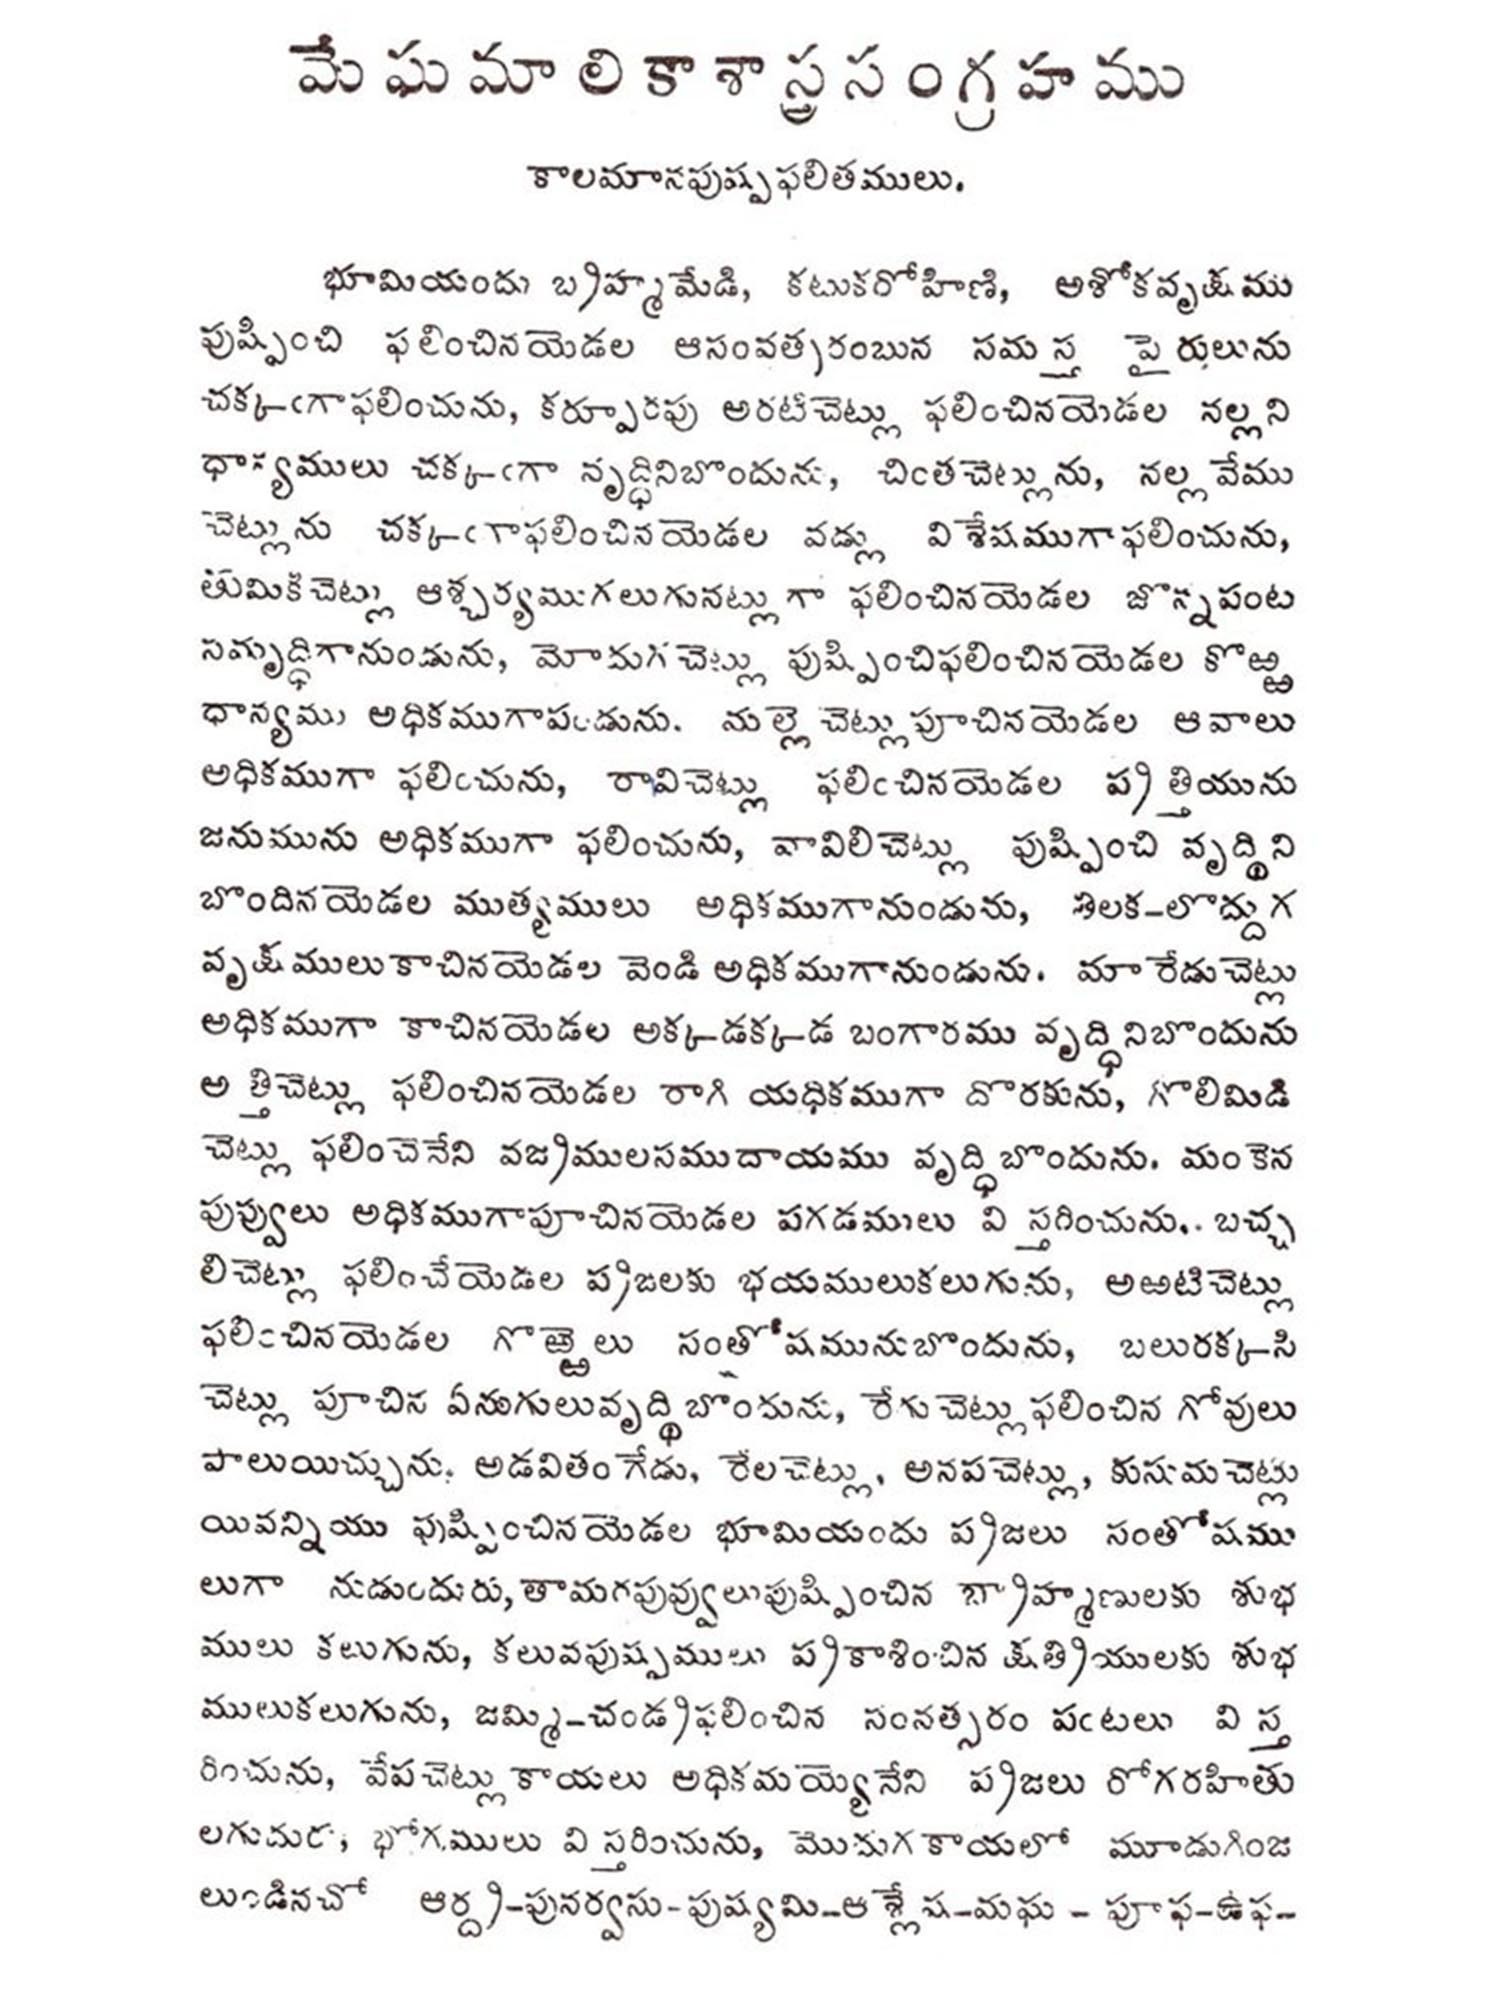 మేఘమాలికాశాస్త్రసంగ్రహము
కాలమానపుష్పఫలితములు.
భూమియందు బ్రహ్మమేడి, కటుకరోహిణి, అశోకవృక్షము
పుష్పించి ఫలించినయెడల ఆసంవత్సరంబున సమస్త పైరులును
చక్కఁగాఫలించును, కర్పూరపు అరటిచెట్లు ఫలించినయెడల నల్లని
ధాన్యములు చక్కఁగా వృద్ధినిబొందును, చింతచెట్లును, నల్లవేము
చెట్లును చక్కఁగాఫలించినయెడల వడ్లు విశేషముగాఫలించును,
తుమికిచెట్లు ఆశ్చర్యముగలుగునట్లుగా ఫలించినయెడల జొన్నపంట
సమృద్ధిగానుండును, మోదుగచెట్లు పుష్పించిఫలించినయెడల కొఱ్ఱ
ధాన్యము అధికముగాపండును. మల్లెచెట్లుపూచినయెడల ఆవాలు
అధికముగా ఫలించును, రావిచెట్లు ఫలించినయెడల ప్రత్తియును
జనుమును అధికముగా ఫలించును, వావిలిచెట్లు పుష్పించి వృద్ధిని
బొందినయెడల ముత్యములు అధికముగానుండును, తిలక-లొద్దుగ
వృక్షములుకాచినయెడల వెండి అధికముగానుండును. మారేడుచెట్లు
అధికముగా కాచినయెడల అక్కడక్కడ బంగారము వృద్ధినిబొందును
అత్తిచెట్లు ఫలించినయెడల రాగి యధికముగా దొరకును, గొలిమిడి
చెట్లు ఫలించెనేని వజ్రములసముదాయము వృద్ధిబొందును. మంకెన
పువ్వులు అధికముగాపూచినయెడల పగడములు విస్తరించును. బచ్చ
లిచెట్లు ఫలించేయెడల ప్రజలకు భయములుకలుగును, అఱటిచెట్లు
ఫలించినయెడల గొఱ్ఱెలు సంతోషమునుబొందును, బలురక్కసి
చెట్లు పూచిన ఏనుగులువృద్ధిబొందును, రేగుచెట్లుఫలించిన గోవులు
పాలుయిచ్చును. అడవితంగేడు, రేలచెట్లు, అనపచెట్లు, కుసుమచెట్లు
యివన్నియు పుష్పించినయెడల భూమియందు ప్రజలు సంతోషము
లుగా నుడుందురు, తామరపువ్వులుపుష్పించిన బ్రాహ్మణులకు శుభ
ములు కలుగును, కలువపుష్పములు ప్రకాశించిన క్షత్రియులకు శుభ
ములుకలుగును, జమ్మి-చండ్రఫలించిన సంవత్సరం పంటలు విస్త
రించును, వేపచెట్లుకాయలు అధికమయ్యెనేని ప్రజలు రోగరహితు
లగుదురు, భోగములు విస్తరించును, మొదుగకాయలో మూడుగింజ
లుండినచో ఆర్ద్ర-పునర్వసు-పుష్యమి-ఆశ్లేష-మఘ - పూఫ-ఉఫ-